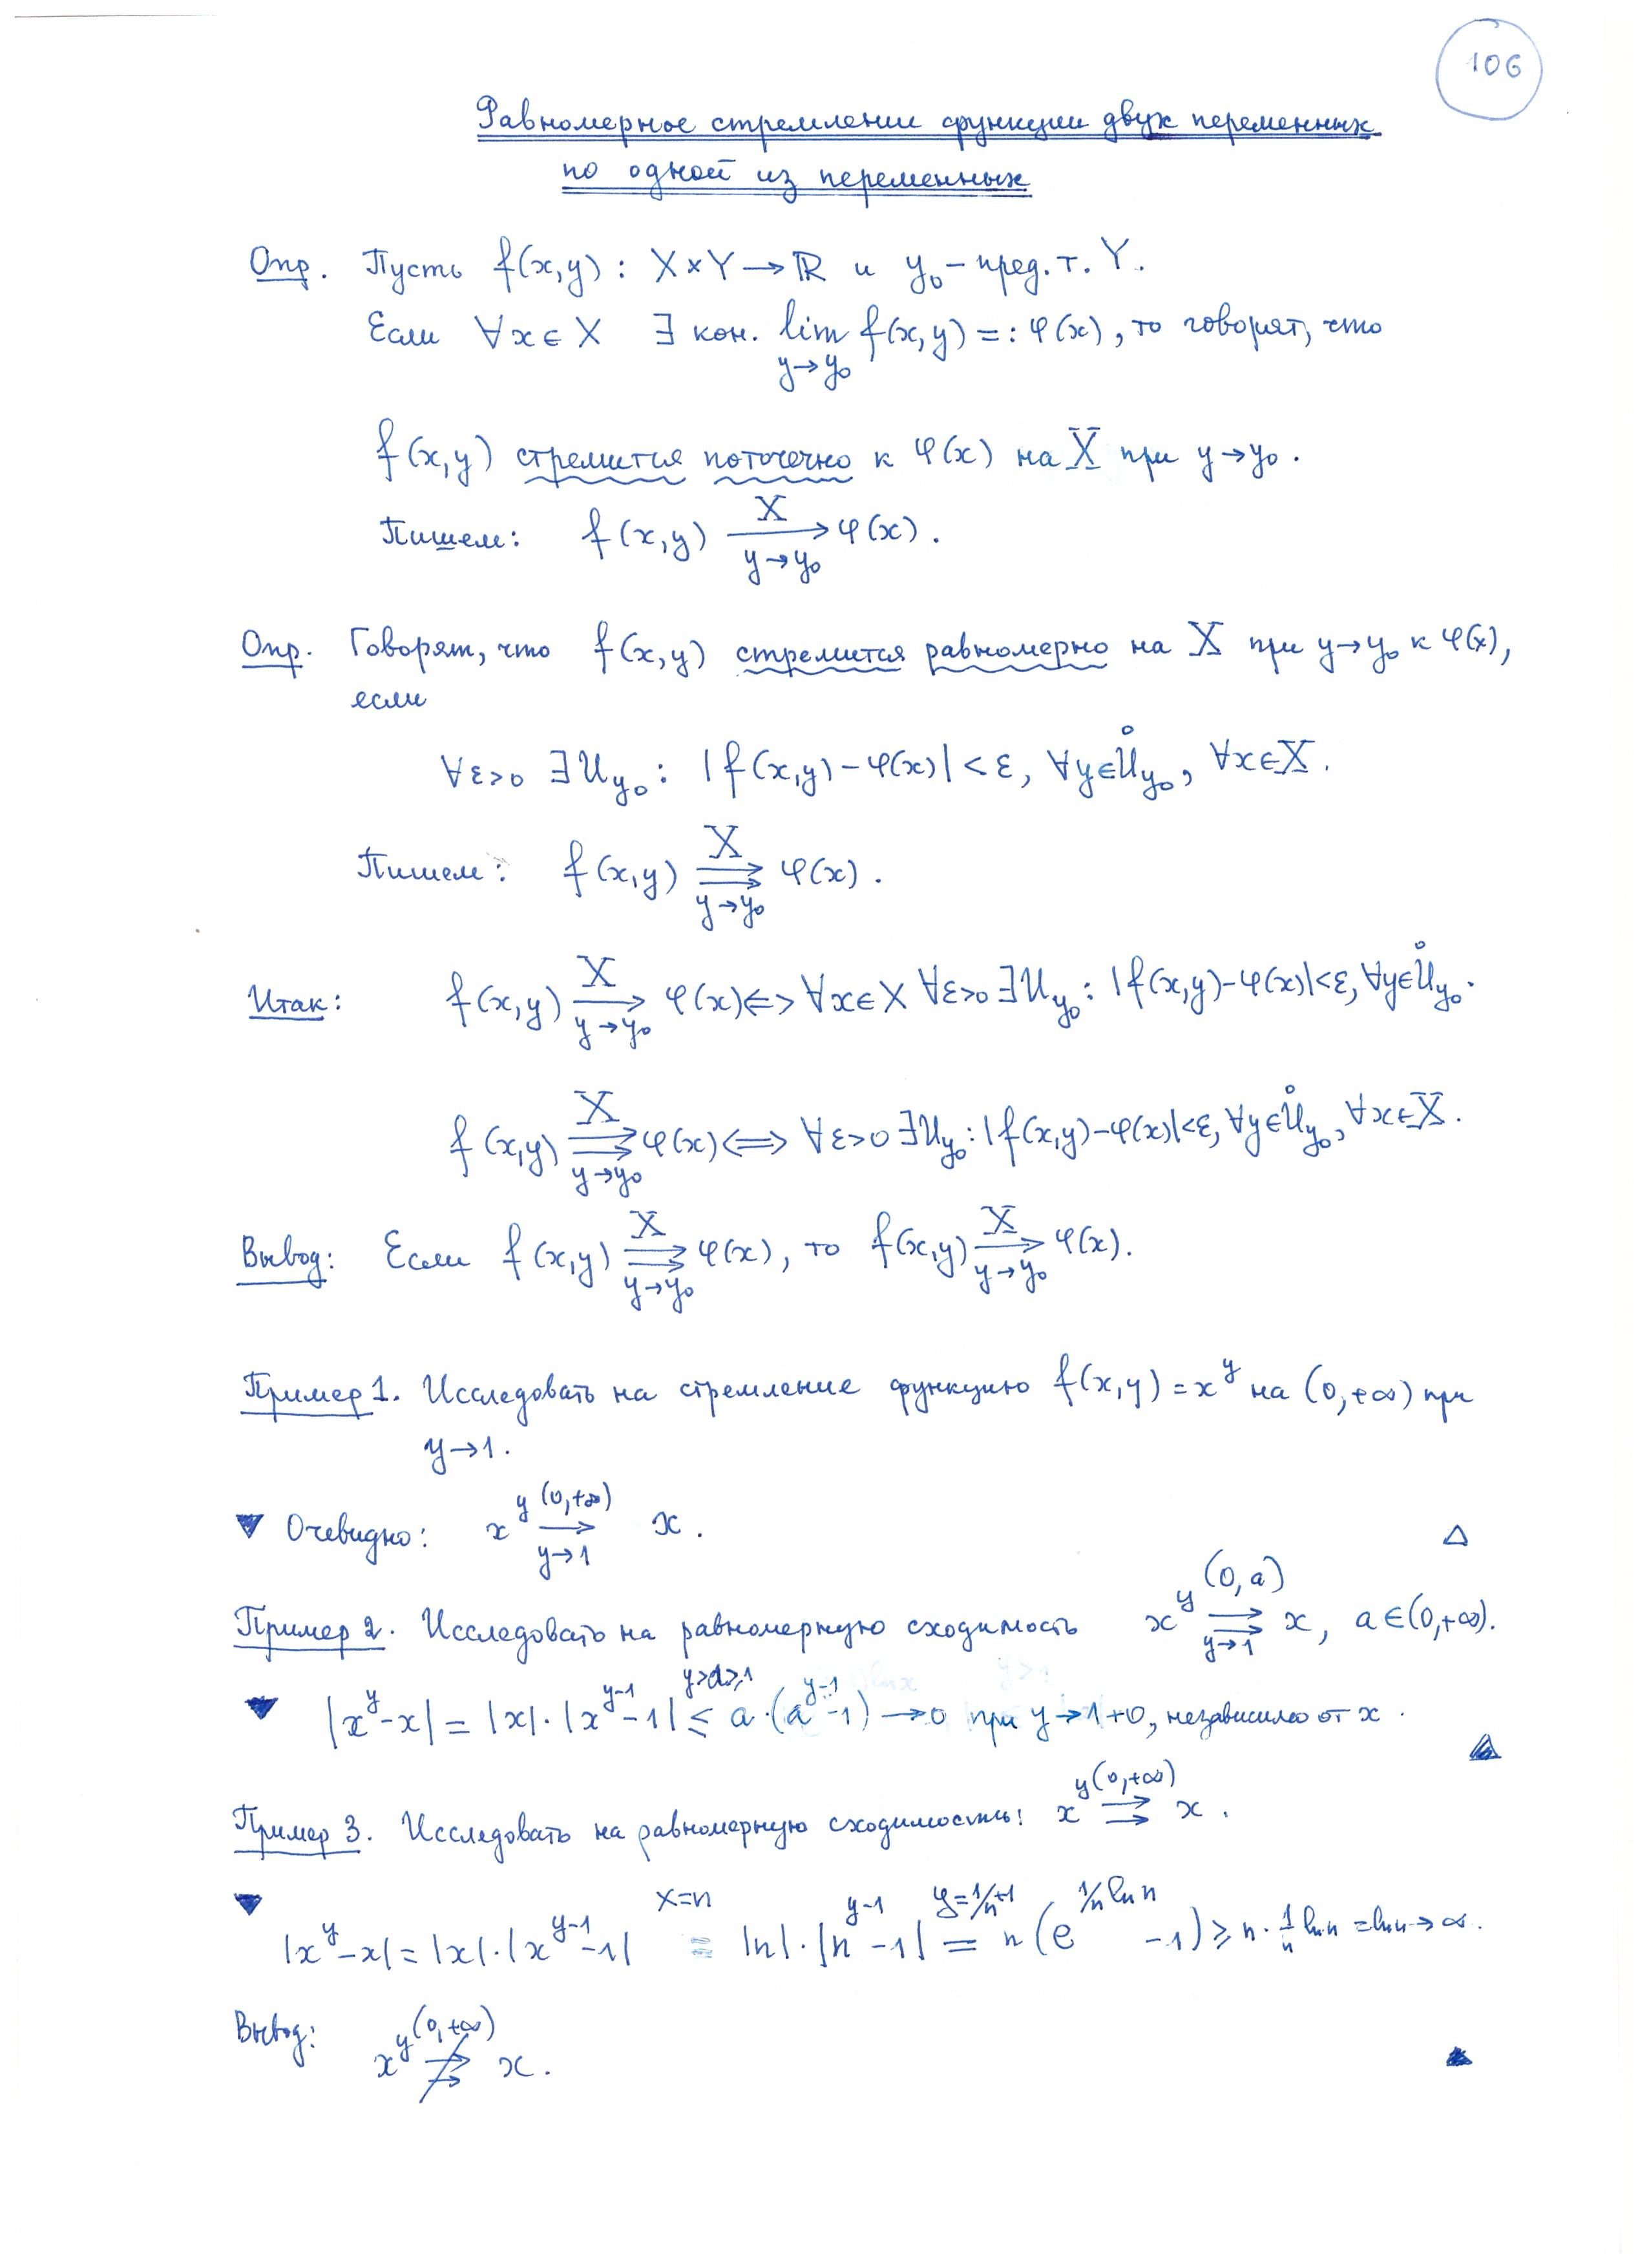 106
Равномерное стремление функции двух переменных
по одной из переменных
Опр. Пусть f(x,y) : X×Y → ℝ и y₀ – пред. т. Y.
Если ∀x ∈ X ∃ кон. lim f(x,y) =: φ(x), то говорят, что
y→y₀
f(x,y) стремится поточечно к φ(x) на X при y→y₀.
Пишем: f(x,y) —X→ φ(x).
y→y₀
Опр. Говорят, что f(x,y) стремится равномерно на X при y→y₀ к φ(x),
если
∀ε>0 ∃U_{y₀} : |f(x,y) – φ(x)| < ε, ∀y∈Ů_{y₀}, ∀x∈X.
Пишем: f(x,y) X⇉ φ(x).
y→y₀
Итак: f(x,y) —X→ φ(x) ⟺ ∀x∈X ∀ε>0 ∃U_{y₀} : |f(x,y)–φ(x)|<ε, ∀y∈Ů_{y₀}.
y→y₀
f(x,y) X⇉ φ(x) ⟺ ∀ε>0 ∃U_{y₀} : |f(x,y)–φ(x)|<ε, ∀y∈Ů_{y₀}, ∀x∈X.
y→y₀
Вывод: Если f(x,y) X⇉ φ(x), то f(x,y) —X→ φ(x).
y→y₀ y→y₀
Пример 1. Исследовать на стремление функцию f(x,y) = x^y на (0,+∞) при
y→1.
▼ Очевидно: x^y —(0,+∞)→ x. △
y→1
Пример 2. Исследовать на равномерную сходимость x^y (0,a)⇉ x, a∈(0,+∞).
y→1
▼ |x^y – x| = |x|·|x^{y–1} – 1| ≤ a·(a^{y–1} –1) → 0 при y→1+0, независимо от x. ▲
Пример 3. Исследовать на равномерную сходимость: x^y (0,+∞)⇉ x.
▼
x=n y=1/n+1
|x^y – x| = |x|·|x^{y–1} –1| = |n|·|n^{y–1} –1| = n(e^{1/n ln n} –1) ≥ n·1/n ln n = ln n → ∞.
Вывод: x^y (0,+∞)⇉̸ x. ▲